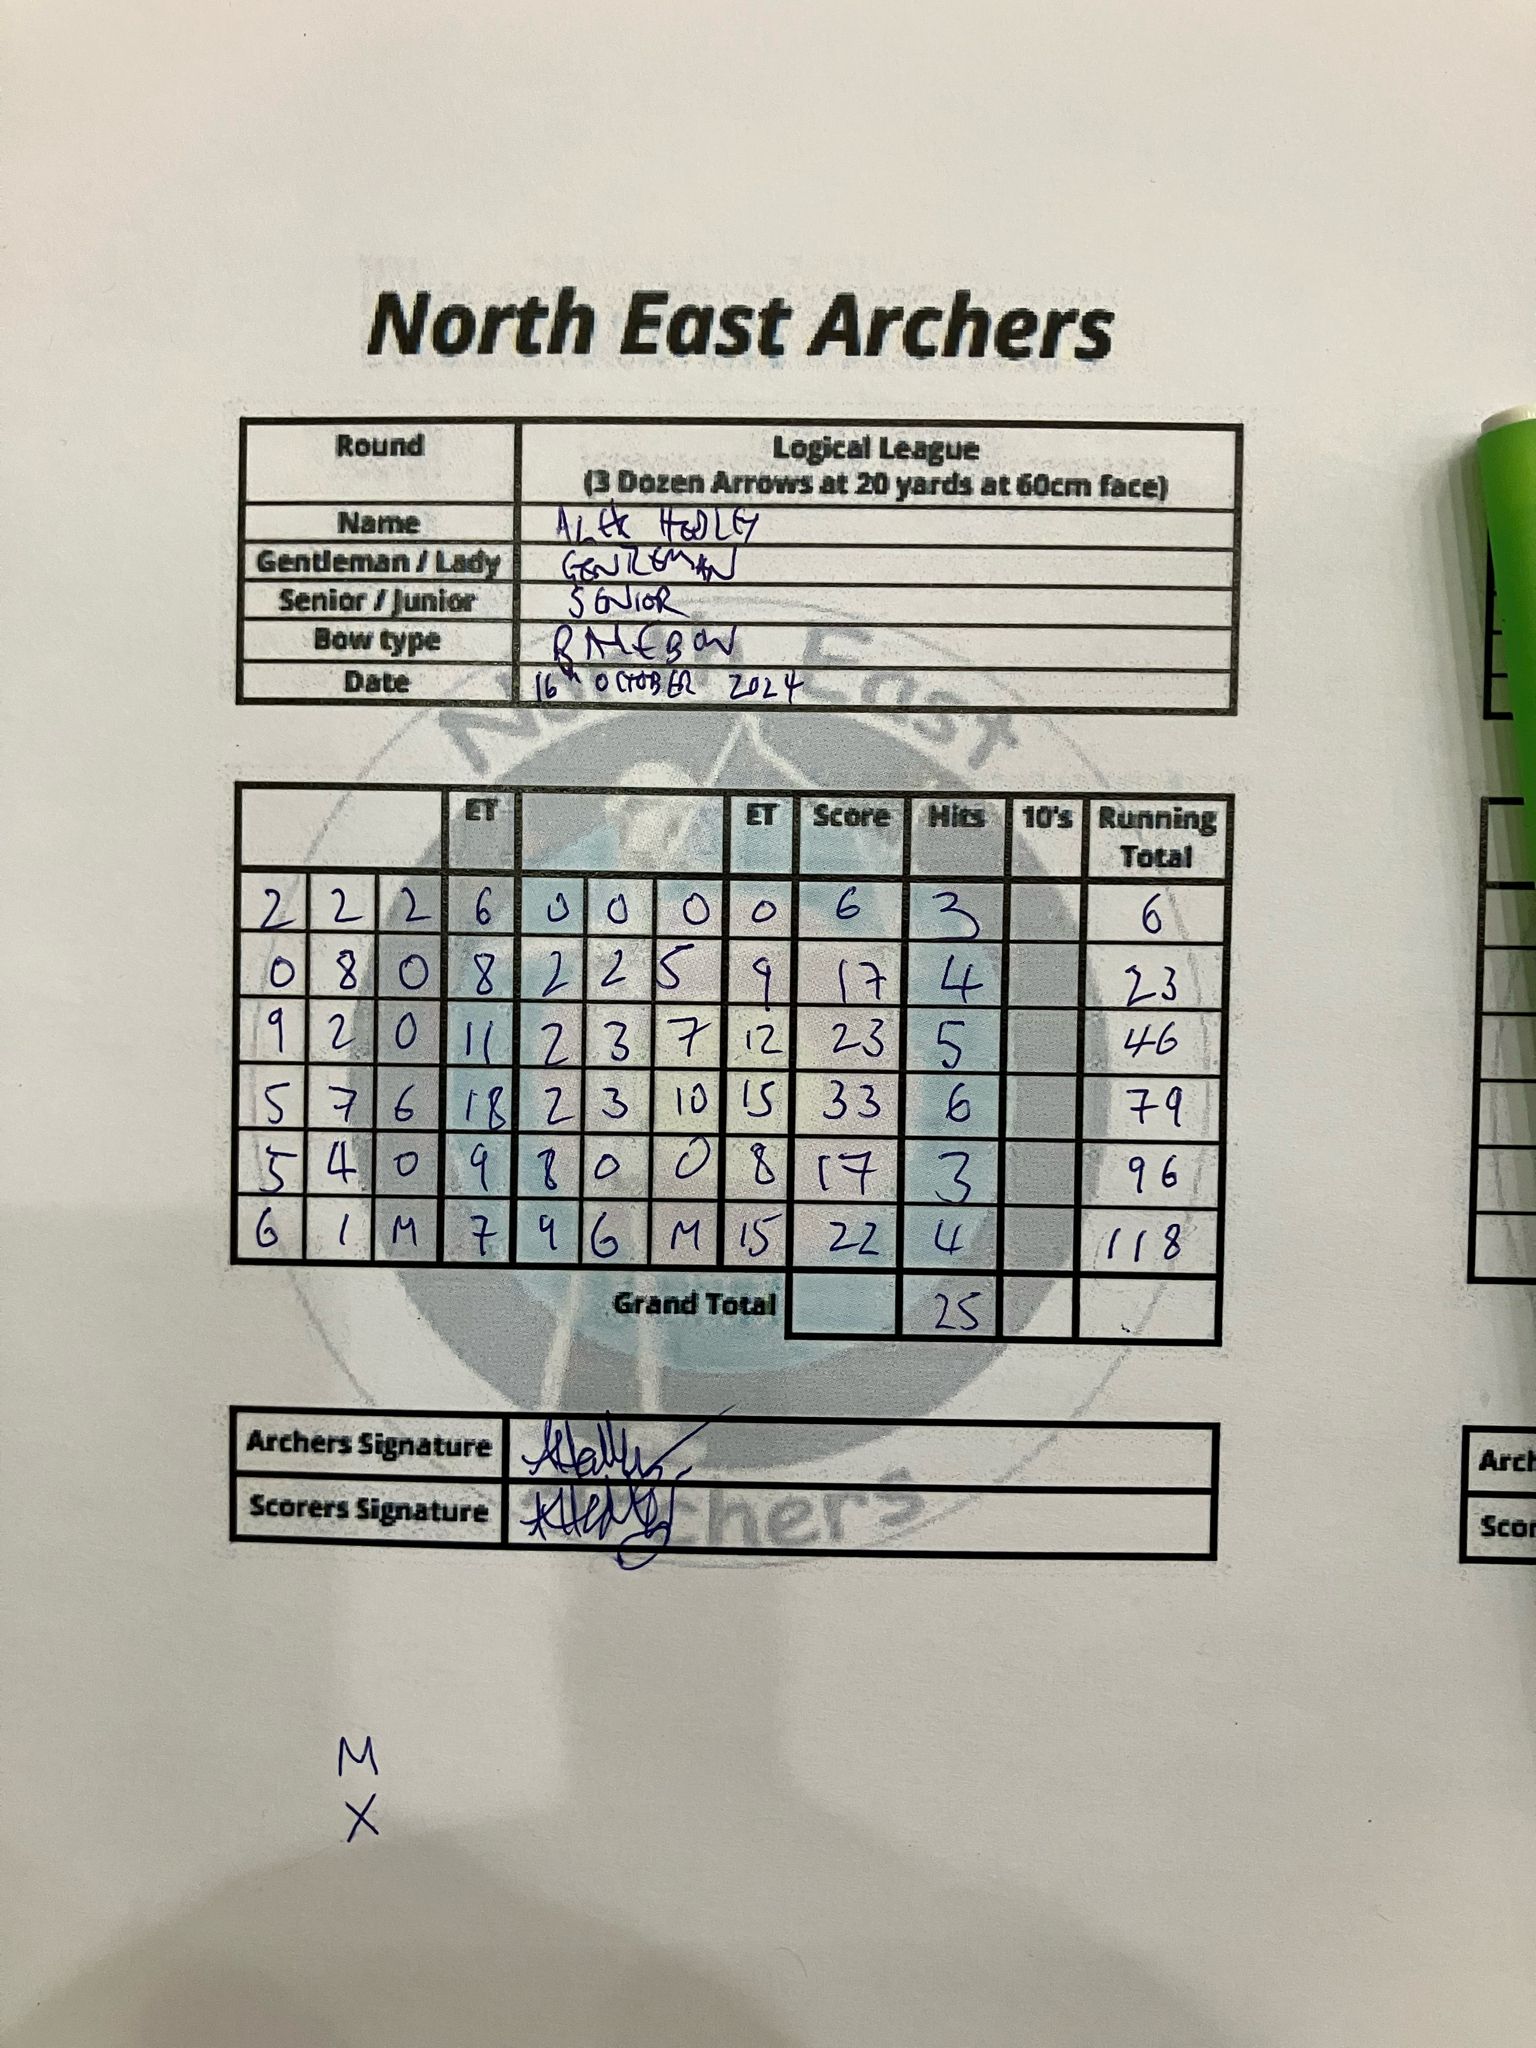 North East Archers
Round Logical League
(3 Dozen Arrows at 20 yards at 60cm face)
Name ALEX HEDLEY
Gentleman / Lady GENTLEMAN
Senior / Junior SENIOR
Bow type BAREBOW
Date 16th OCTOBER 2024
North East
ET ET Score Hits 10's Running
Total
2 2 2 6 0 0 0 0 6 3 6
0 8 0 8 2 2 5 9 17 4 23
9 2 0 11 2 3 7 12 23 5 46
5 7 6 18 2 3 10 15 33 6 79
5 4 0 9 8 0 0 8 17 3 96
6 1 M 7 9 6 M 15 22 4 118
Grand Total 25
Archers Signature
Scorers Signature
Archers
M
X